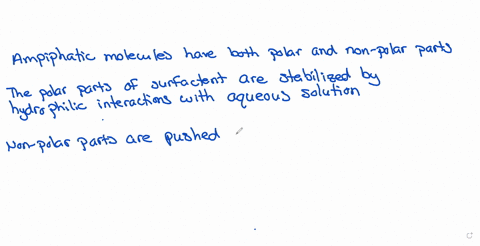 Ampiphatic molecules have both polar and non-polar parts
The polar parts of surfactent are stabilized by
hydrophilic interactions with aqueous solution
Non-polar parts are pushed